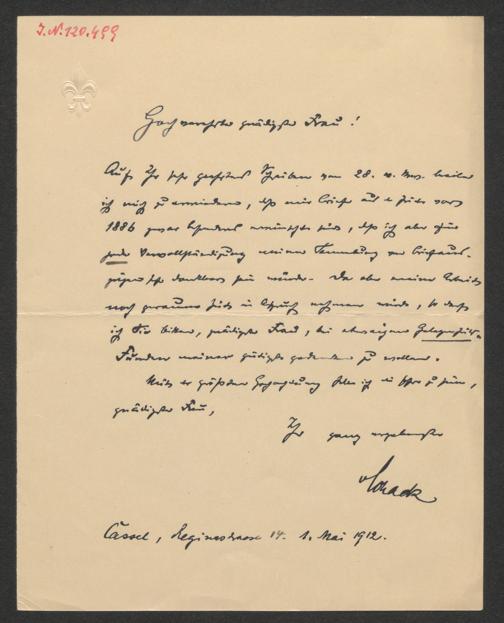 J.N. 120.499
Hochverehrte gnädigste Frau!
Auf Ihr sehr geehrtes Schreiben vom 28. v. Mts. beeile
ich mich zu erwidern, daß mir Briefe aus der Zeit vor
1886 ganz besonders erwünscht sind, daß ich aber für
jede Vervollständigung meiner Sammlung von Briefaus-
zügen sehr dankbar sein würde. Da aber meine Arbeit
noch geraume Zeit in Anspruch nehmen wird, so darf
ich Sie bitten, gnädigste Frau, bei etwaigen Gelegenheits-
Funden meiner gütigst gedenken zu wollen.
Mit größter Hochachtung habe ich die Ehre zu sein,
gnädigste Frau,
Ihr ganz ergebenster
vSchack
Cassel, Reginastrasse 14. 1. Mai 1912.